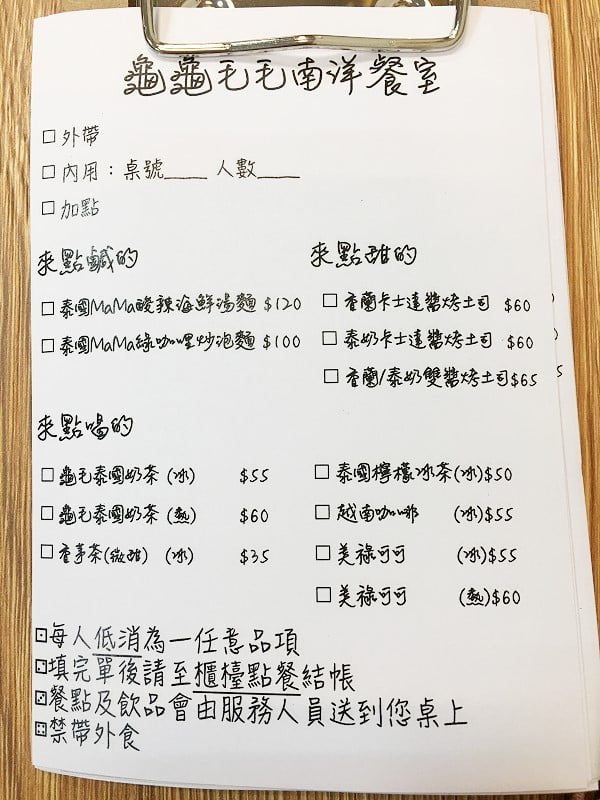 龜龜毛毛南洋餐室
□外帶
□內用：桌號____ 人數____
□加點
來點鹹的
□泰國MaMa酸辣海鮮湯麵 $120
□泰國MaMa綠咖哩炒泡麵 $100
來點甜的
□香蘭卡士達醬烤土司 $60
□泰奶卡士達醬烤土司 $60
□香蘭/泰奶雙醬烤土司$65
來點喝的
□龜毛泰國奶茶(冰) $55
□龜毛泰國奶茶(熱) $60
□香茅茶(微甜) (冰) $35
□泰國檸檬冰茶(冰)$50
□越南咖啡 (冰)$55
□美祿可可 (冰)$55
□美祿可可 (熱)$60
⚀每人低消為一任意品項
⚁填完單後請至櫃檯點餐結帳
⚂餐點及飲品會由服務人員送到您桌上
⚃禁帶外食